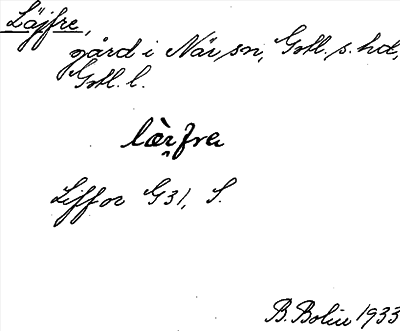 Läjfre,
gård i När sn, Gotl. s. hd,
Gotl. l.
Liffor G31, S.
B. Bolin 1933